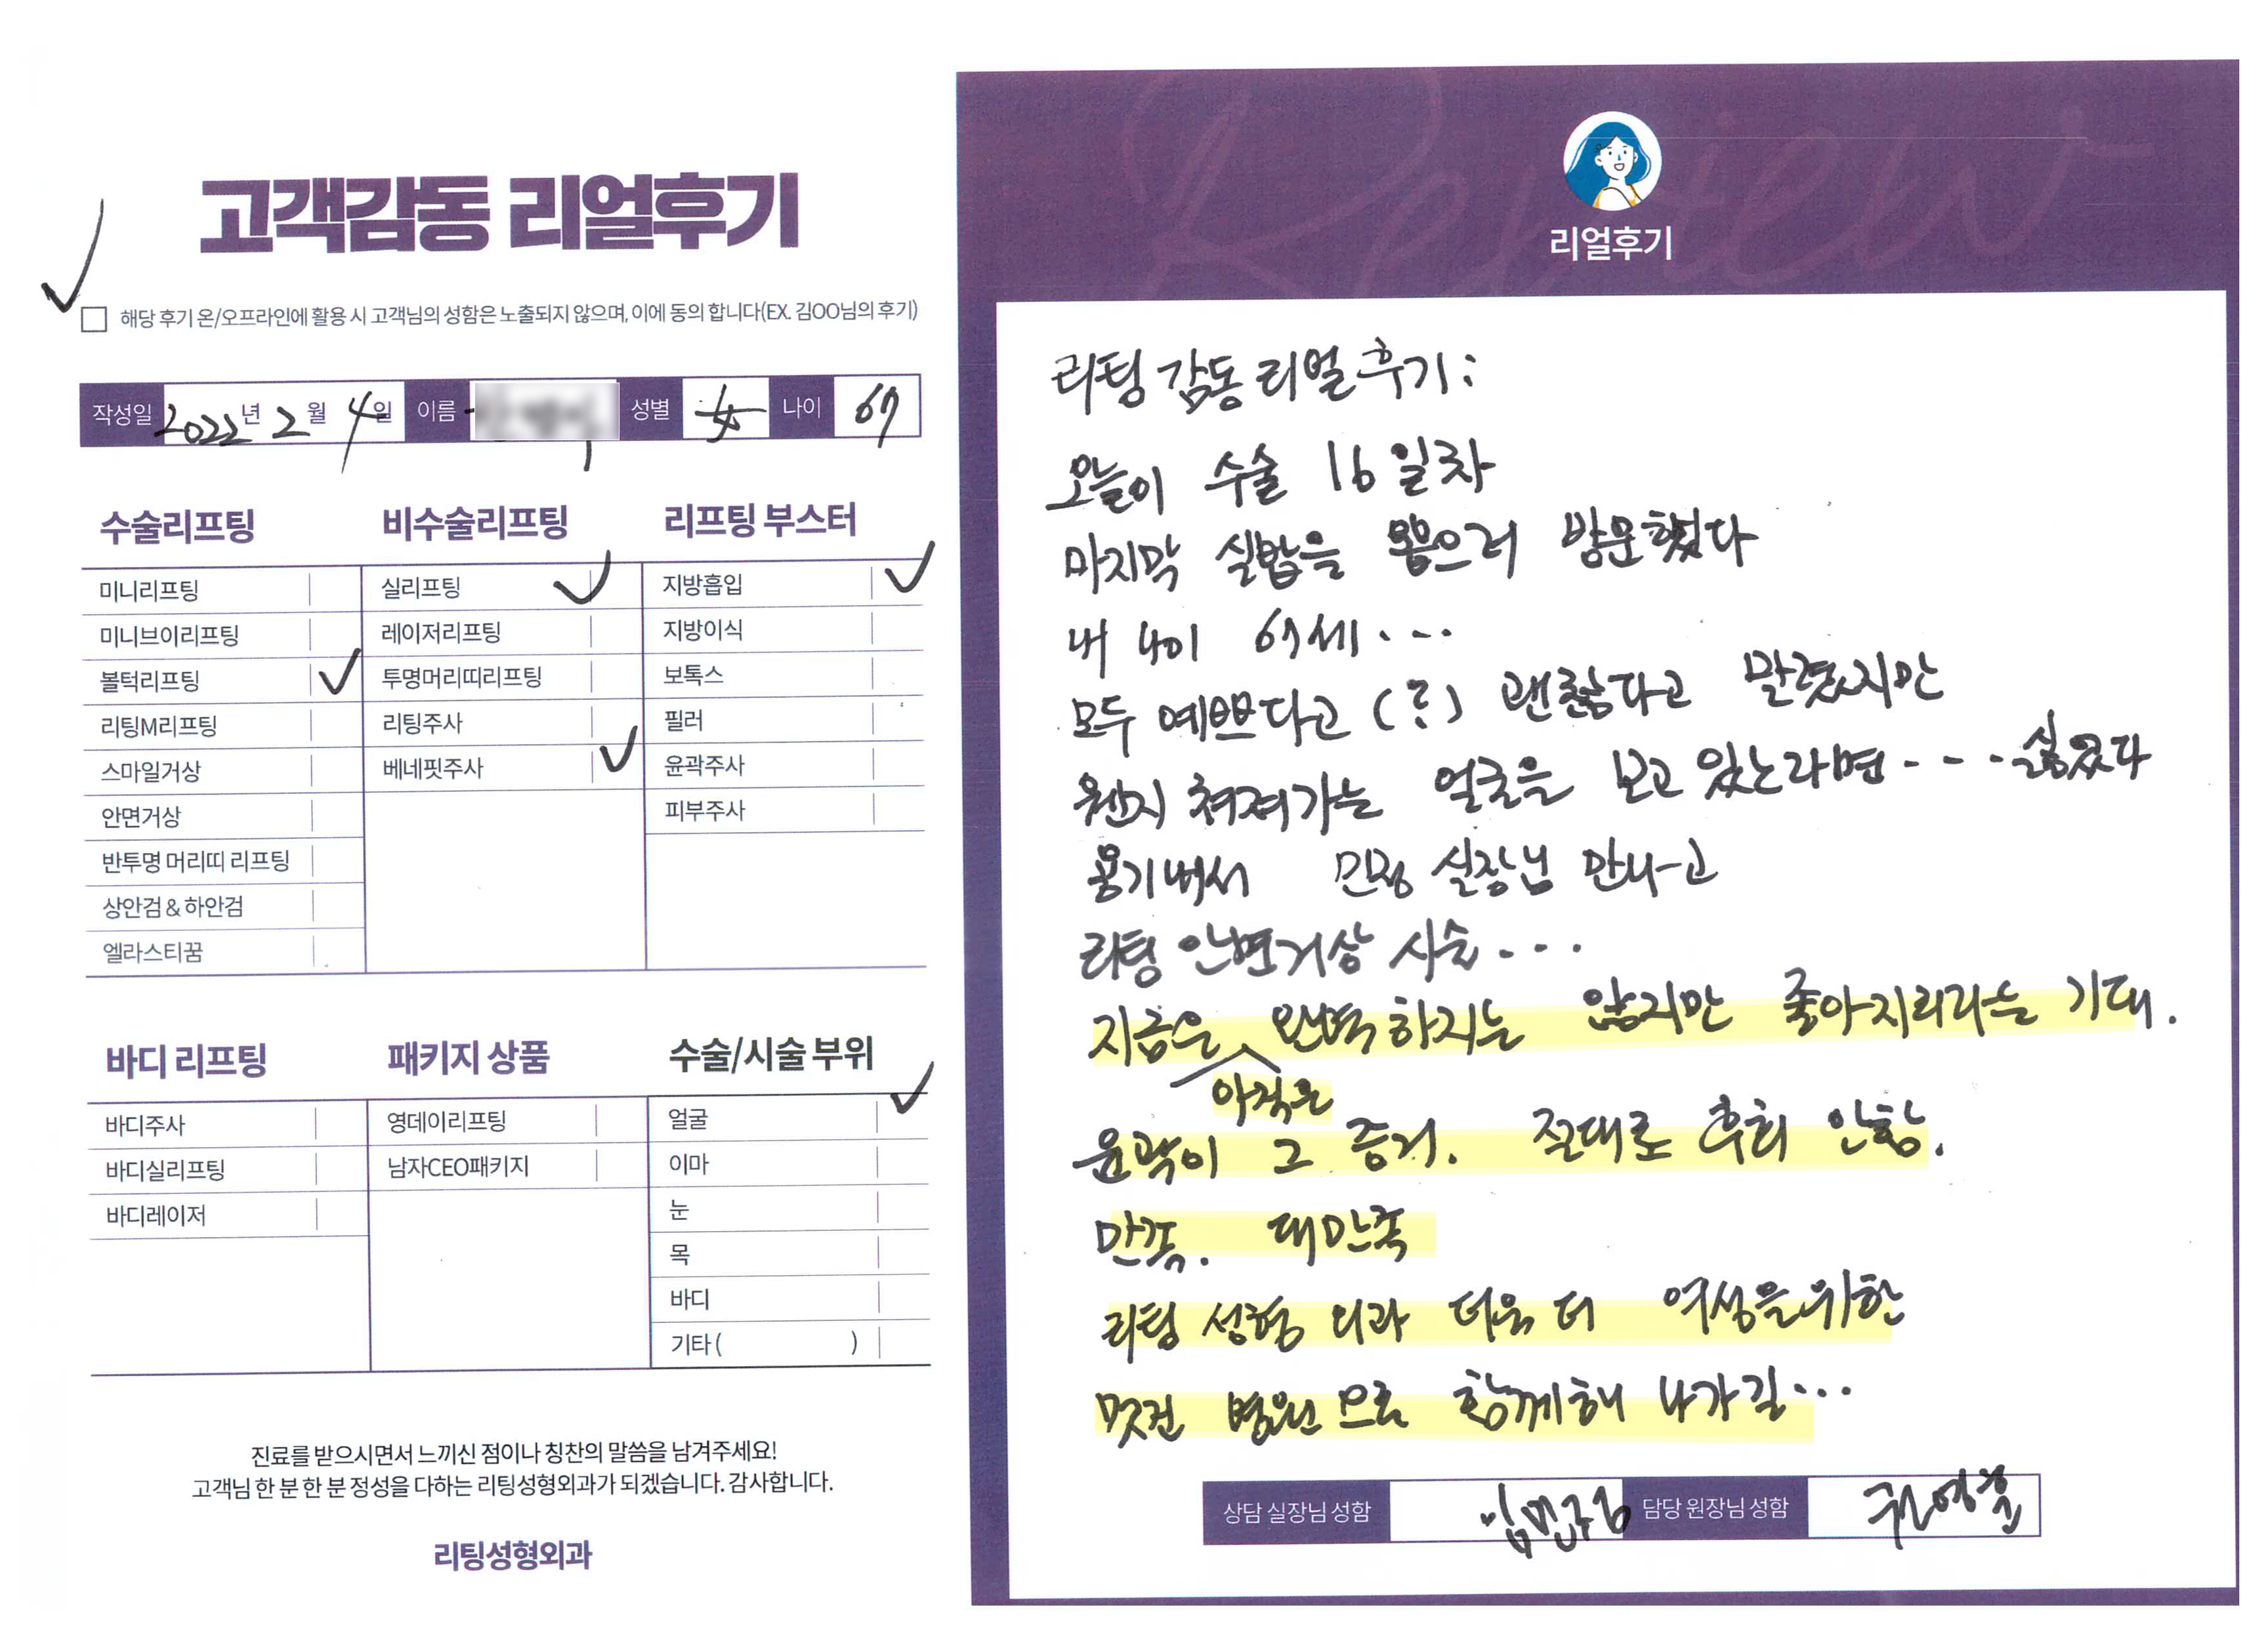 고객감동 리얼후기
해당 후기 온/오프라인에 활용 시 고객님의 성함은 노출되지 않으며, 이에 동의 합니다(EX. 김OO님의 후기)
작성일 2022년 2월 4일 이름 성별 女 나이 67
수술리프팅 비수술리프팅 리프팅 부스터
미니리프팅 실리프팅 지방흡입
미니브이리프팅 레이저리프팅 지방이식
볼턱리프팅 투명머리띠리프팅 보톡스
리팅M리프팅 리팅주사 필러
스마일거상 베네핏주사 윤곽주사
안면거상 피부주사
반투명 머리띠 리프팅
상안검 & 하안검
엘라스티꿈
바디 리프팅 패키지 상품 수술/시술 부위
바디주사 영데이리프팅 얼굴
바디실리프팅 남자CEO패키지 이마
바디레이저 눈
목
바디
기타( )
진료를 받으시면서 느끼신 점이나 칭찬의 말씀을 남겨주세요!
고객님 한 분 한 분 정성을 다하는 리팅성형외과가 되겠습니다. 감사합니다.
리팅성형외과
Review
리얼후기
리팅 감동 리얼 후기:
오늘이 수술 16일차
마지막 실밥을 뽑으러 방문했다
내 나이 67세...
모두 예쁘다고 (?) 괜찮다고 말렸지만
웬지 쳐져가는 얼굴을 보고 있노라면... 싫었다
용기내서 민정 실장님 만나고
리팅 안면거상 시술...
지금은 완벽하지는 않지만 좋아지리라는 기대.
아직은
윤곽이 그 증거. 절대로 후회 안함.
만족. 대만족
리팅 성형 외과 더욱 더 여성을 위한
멋진 병원으로 함께해 나가길...
상담 실장님 성함 임민정 담당 원장님 성함